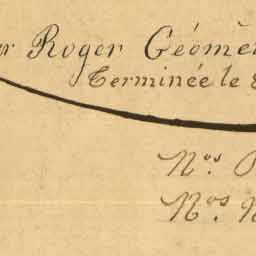 Roger Géomè
Terminée le
Nos
Nos